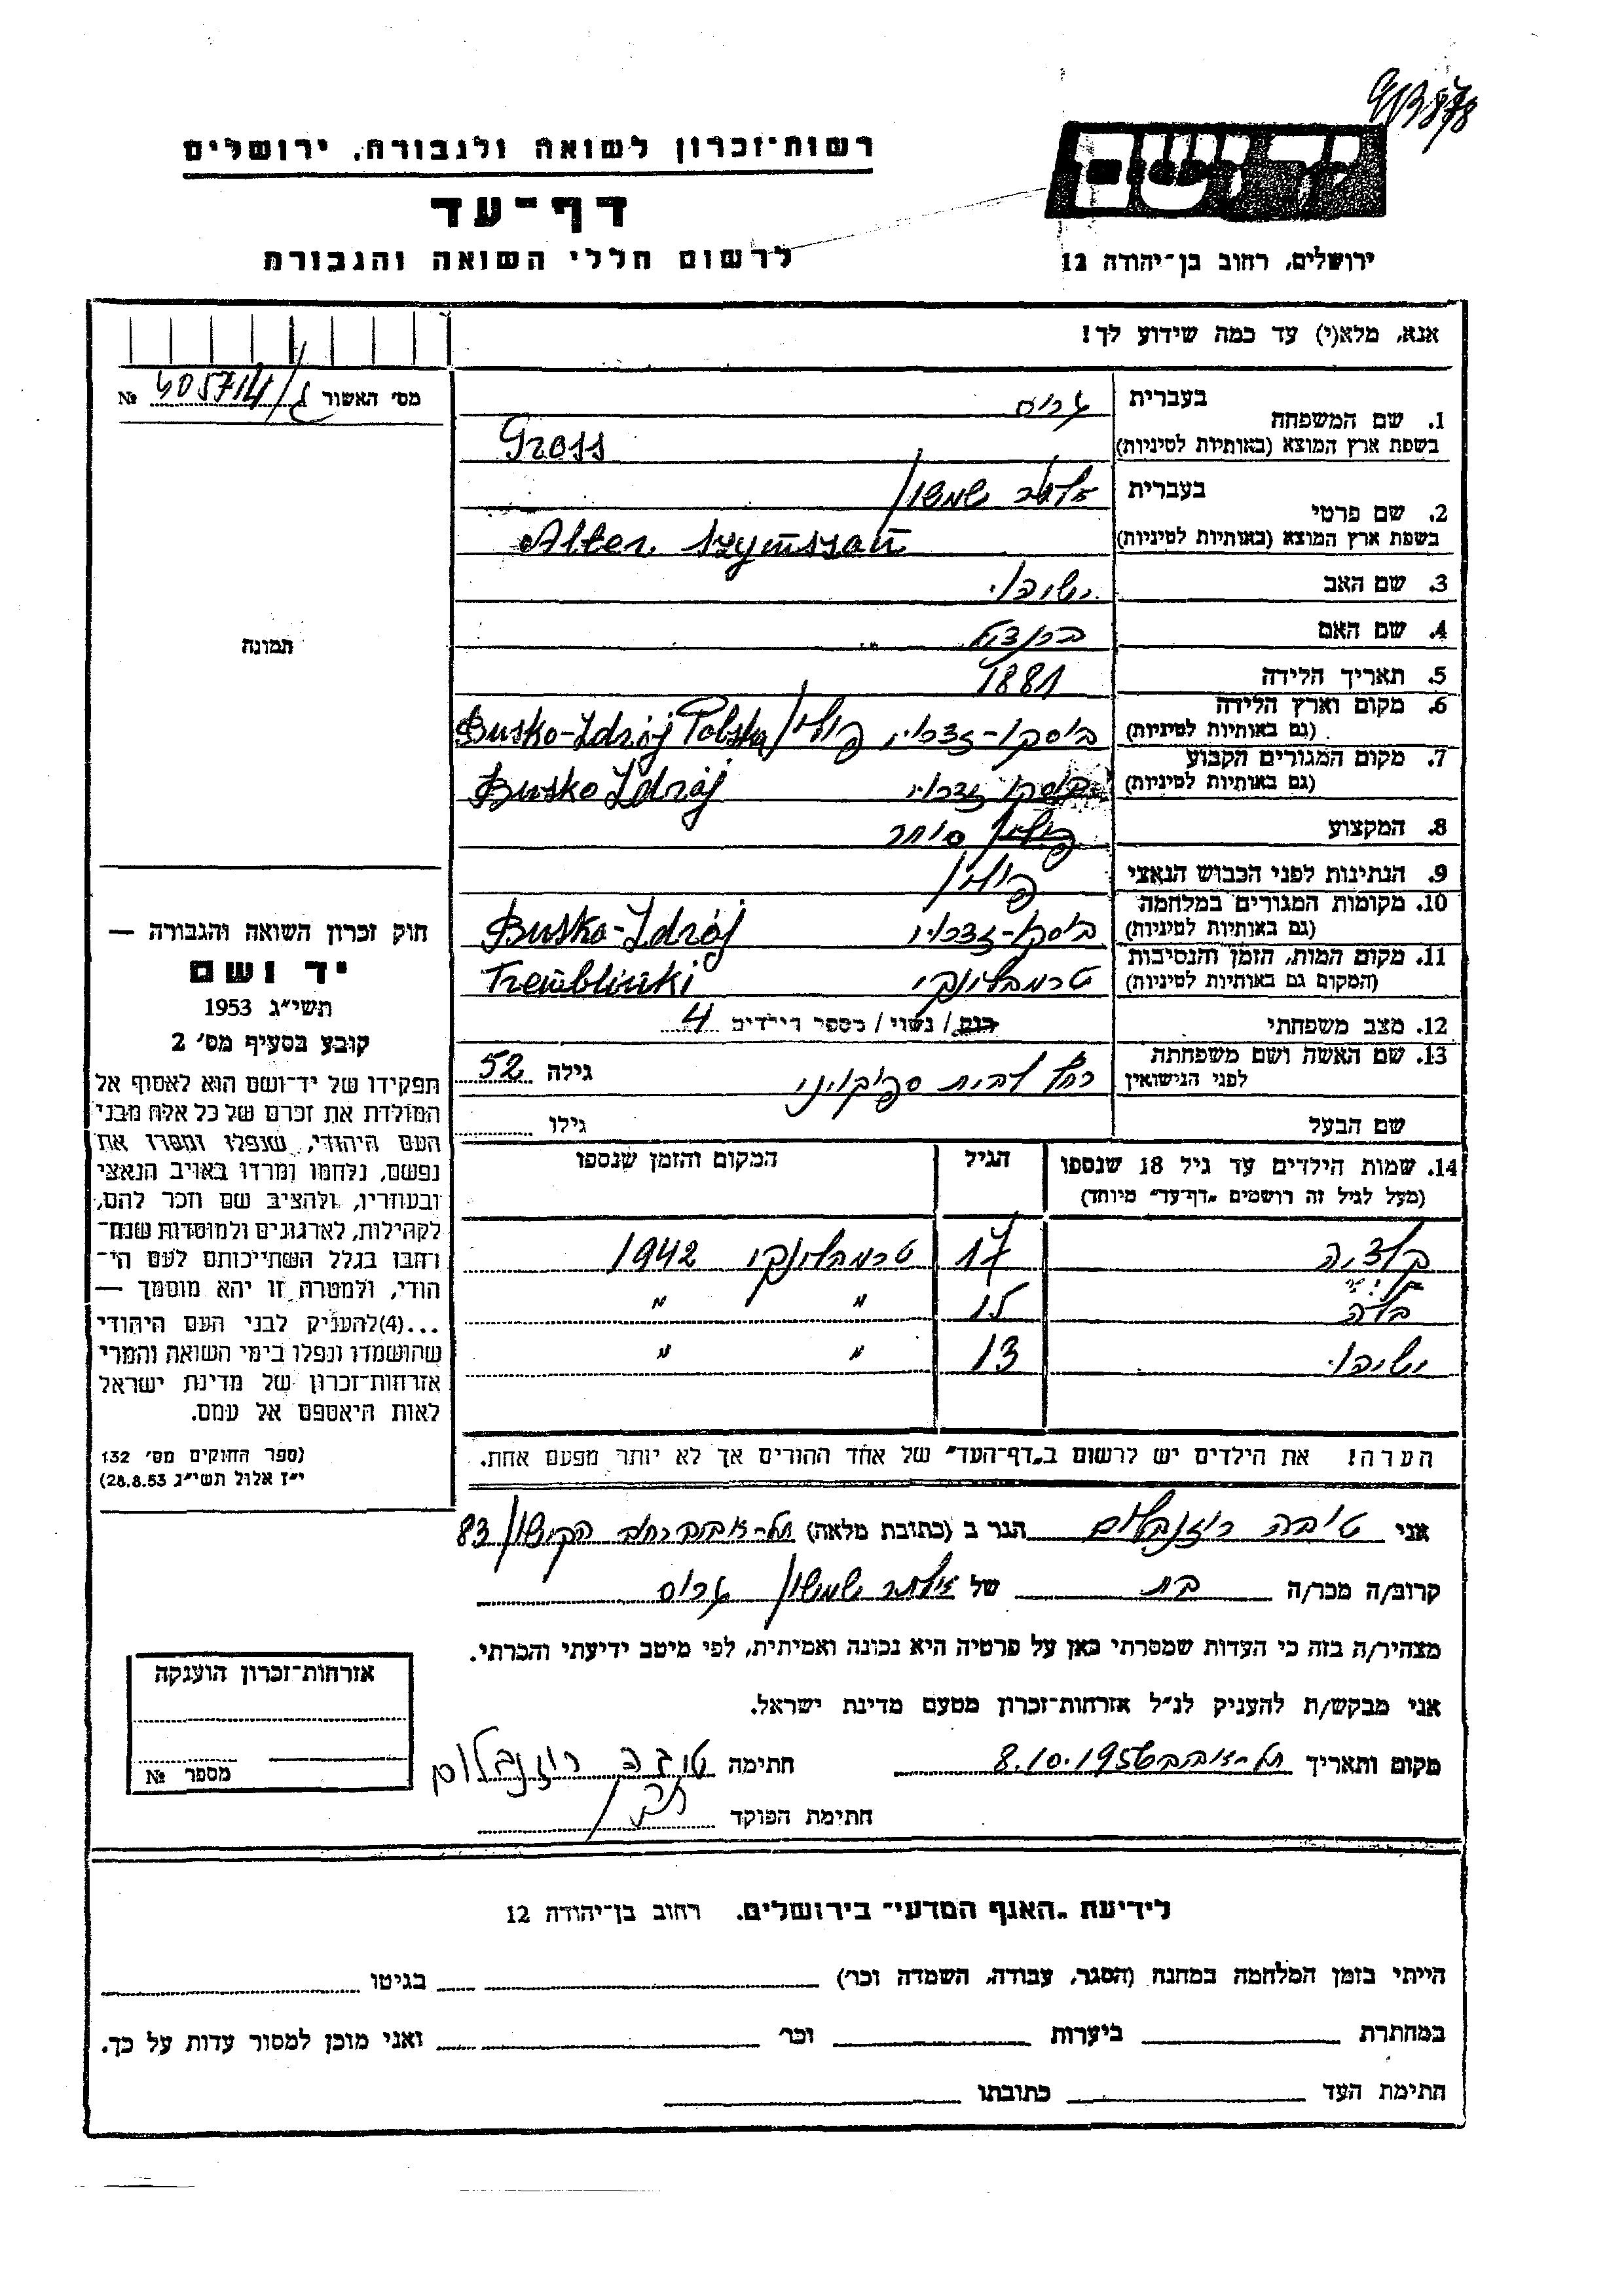 רשות־זכרון לשואה ולגבורה, ירושלים
דף־עד
לרשום חללי השואה והגבורה
יד ושם
ירושלים, רחוב בן־יהודה 12
אנא, מלא(י) עד כמה שידוע לך!
מס׳ האשור № 405714/ג
1. שם המשפחה
בעברית גרוס
בשפת ארץ המוצא (באותיות לטיניות) Gross
2. שם פרטי
בעברית אלתר שמשון
בשפת ארץ המוצא (באותיות לטיניות) Alter Szymszan
3. שם האב
4. שם האם
5. תאריך הלידה 1881
6. מקום וארץ הלידה
(גם באותיות לטיניות) בוסקו-זדרוי פולין Busko-Zdrój Polska
7. מקום המגורים הקבוע
(גם באותיות לטיניות) בוסקו זדרוי Busko Zdrój
8. המקצוע סוחר
9. הנתינות לפני הכבוש הנאצי פולין
10. מקומות המגורים במלחמה
(גם באותיות לטיניות) בוסקו-זדרוי Busko-Zdrój
11. מקום המות, הזמן והנסיבות
(המקום גם באותיות לטיניות) טרמבלינקי Tremblinki
12. מצב משפחתי רווק / נשוי / מספר הילדים 4
13. שם האשה ושם משפחתה
לפני הנישואין רחל לבית גילה 52
שם הבעל גילו
14. שמות הילדים עד גיל 18 שנספו
(מעל לגיל זה רושמים „דף־עד״ מיוחד)
הגיל
המקום והזמן שנספו
17 טרמבלינקי 1942
בלה 15 " "
13 " "
הערה! את הילדים יש לרשום ב„דף־העד״ של אחד ההורים אך לא יותר מפעם אחת.
תמונה
חוק זכרון השואה והגבורה —
יד ושם
תשי״ג 1953
קובע בסעיף מס׳ 2
תפקידו של יד־ושם הוא לאסוף אל
המולדת את זכרם של כל אלה מבני
העם היהודי, שנפלו ומסרו את
נפשם, נלחמו ומרדו באויב הנאצי
ובעוזריו, ולהציב שם וזכר להם,
לקהילות, לארגונים ולמוסדות שנח־
רבו בגלל השתייכותם לעם הי־
הודי, ולמטרה זו יהא מוסמך —
...(4) להעניק לבני העם היהודי
שהושמדו ונפלו בימי השואה והמרי
אזרחות־זכרון של מדינת ישראל
לאות היאספם אל עמם.
(ספר החוקים מס׳ 132
י״ז אלול תשי״ג 28.8.53)
אני טובה רוזנבלום הגר ב (כתובת מלאה) תל-אביב רחוב הקישון 83
קרוב/ה מכר/ה בת של אלתר שמשון גרוס
מצהיר/ה בזה כי העדות שמסרתי כאן על פרטיה היא נכונה ואמיתית, לפי מיטב ידיעתי והכרתי.
אני מבקש/ת להעניק לנ״ל אזרחות־זכרון מטעם מדינת ישראל.
מקום ותאריך תל-אביב 8.10.1956 חתימה טובה רוזנבלום
חתימת הפוקד
אזרחות־זכרון הוענקה
מספר №
לידיעת „האגף המדעי״ בירושלים. רחוב בן־יהודה 12
הייתי בזמן המלחמה במחנה (הסגר, עבודה, השמדה וכו׳) בגיטו
במחתרת ביערות וכו׳ ואני מוכן למסור עדות על כך.
חתימת העד כתובתו